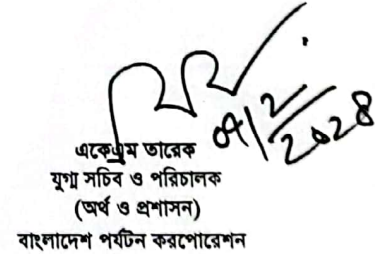 ০৭/২/২০২৪
একেএম তারেক
যুগ্ম সচিব ও পরিচালক
(অর্থ ও প্রশাসন)
বাংলাদেশ পর্যটন করপোরেশন